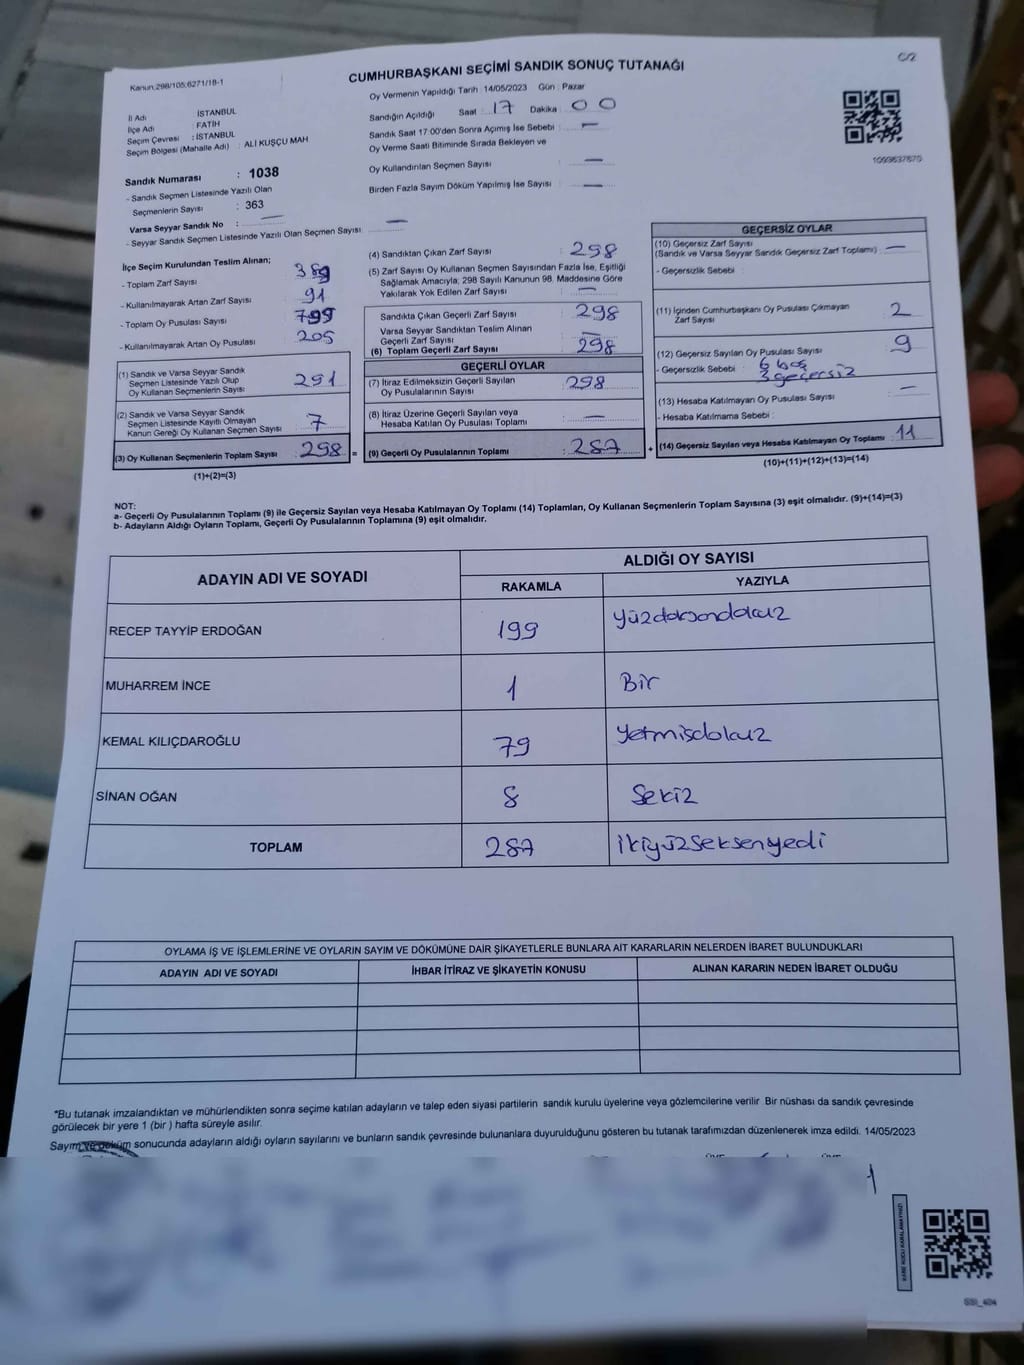 C/2
Kanun:298/105;6271/18-1
CUMHURBAŞKANI SEÇİMİ SANDIK SONUÇ TUTANAĞI
Oy Vermenin Yapıldığı Tarih 14/05/2023 Gün : Pazar
Sandığın Açıldığı Saat : 17 Dakika : 00
Sandık Saat 17:00'den Sonra Açımış İse Sebebi : —
Oy Verme Saati Bitiminde Sırada Bekleyen ve
Oy Kullandırılan Seçmen Sayısı : —
Birden Fazla Sayım Döküm Yapılmış İse Sayısı : —
1099637870
İl Adı : İSTANBUL
İlçe Adı : FATİH
Seçim Çevresi : İSTANBUL
Seçim Bölgesi (Mahalle Adı) : ALİ KUŞÇU MAH
Sandık Numarası : 1038
- Sandık Seçmen Listesinde Yazılı Olan
Seçmenlerin Sayısı : 363
Varsa Seyyar Sandık No : —
- Seyyar Sandık Seçmen Listesinde Yazılı Olan Seçmen Sayısı: —
İlçe Seçim Kurulundan Teslim Alınan;
- Toplam Zarf Sayısı : 389
- Kullanılmayarak Artan Zarf Sayısı : 91
- Toplam Oy Pusulası Sayısı : 799
- Kullanılmayarak Artan Oy Pusulası : 205
(1) Sandık ve Varsa Seyyar Sandık
Seçmen Listesinde Yazılı Olup
Oy Kullanan Seçmenlerin Sayısı : 291
(2) Sandık ve Varsa Seyyar Sandık
Seçmen Listesinde Kayıtlı Olmayan
Kanun Gereği Oy Kullanan Seçmen Sayısı : 7
(3) Oy Kullanan Seçmenlerin Toplam Sayısı : 298 =
(1)+(2)=(3)
(4) Sandıktan Çıkan Zarf Sayısı : 298
(5) Zarf Sayısı Oy Kullanan Seçmen Sayısından Fazla İse, Eşitliği
Sağlamak Amacıyla; 298 Sayılı Kanunun 98. Maddesine Göre
Yakılarak Yok Edilen Zarf Sayısı : —
Sandıkta Çıkan Geçerli Zarf Sayısı : 298
Varsa Seyyar Sandıktan Teslim Alınan
Geçerli Zarf Sayısı : —
(6) Toplam Geçerli Zarf Sayısı : 298
GEÇERLİ OYLAR
(7) İtiraz Edilmeksizin Geçerli Sayılan
Oy Pusulalarının Sayısı : 298
(8) İtiraz Üzerine Geçerli Sayılan veya
Hesaba Katılan Oy Pusulası Toplamı : —
(9) Geçerli Oy Pusulalarının Toplamı : 287 +
GEÇERSİZ OYLAR
(10) Geçersiz Zarf Sayısı
(Sandık ve Varsa Seyyar Sandık Geçersiz Zarf Toplamı) : —
- Geçersizlik Sebebi :
(11) İçinden Cumhurbaşkanı Oy Pusulası Çıkmayan
Zarf Sayısı : 2
(12) Geçersiz Sayılan Oy Pusulası Sayısı : 9
- Geçersizlik Sebebi : 6 boş
3 geçersiz
(13) Hesaba Katılmayan Oy Pusulası Sayısı : —
- Hesaba Katılmama Sebebi :
(14) Geçersiz Sayılan veya Hesaba Katılmayan Oy Toplamı : 11
(10)+(11)+(12)+(13)=(14)
NOT:
a- Geçerli Oy Pusulalarının Toplamı (9) ile Geçersiz Sayılan veya Hesaba Katılmayan Oy Toplamı (14) Toplamları, Oy Kullanan Seçmenlerin Toplam Sayısına (3) eşit olmalıdır. (9)+(14)=(3)
b- Adayların Aldığı Oyların Toplamı, Geçerli Oy Pusulalarının Toplamına (9) eşit olmalıdır.
ADAYIN ADI VE SOYADI
ALDIĞI OY SAYISI
RAKAMLA YAZIYLA
RECEP TAYYİP ERDOĞAN 199 Yüzdoksandokuz
MUHARREM İNCE 1 Bir
KEMAL KILIÇDAROĞLU 79 Yetmişdokuz
SİNAN OĞAN 8 Sekiz
TOPLAM 287 ikiyüzseksenyedi
OYLAMA İŞ VE İŞLEMLERİNE VE OYLARIN SAYIM VE DÖKÜMÜNE DAİR ŞİKAYETLERLE BUNLARA AİT KARARLARIN NELERDEN İBARET BULUNDUKLARI
ADAYIN ADI VE SOYADI İHBAR İTİRAZ VE ŞİKAYETİN KONUSU ALINAN KARARIN NEDEN İBARET OLDUĞU
*Bu tutanak imzalandıktan ve mühürlendikten sonra seçime katılan adayların ve talep eden siyasi partilerin sandık kurulu üyelerine veya gözlemcilerine verilir Bir nüshası da sandık çevresinde
görülecek bir yere 1 (bir ) hafta süreyle asılır.
Sayım ve döküm sonucunda adayların aldığı oyların sayılarını ve bunların sandık çevresinde bulunanlara duyurulduğunu gösteren bu tutanak tarafımızdan düzenlenerek imza edildi. 14/05/2023